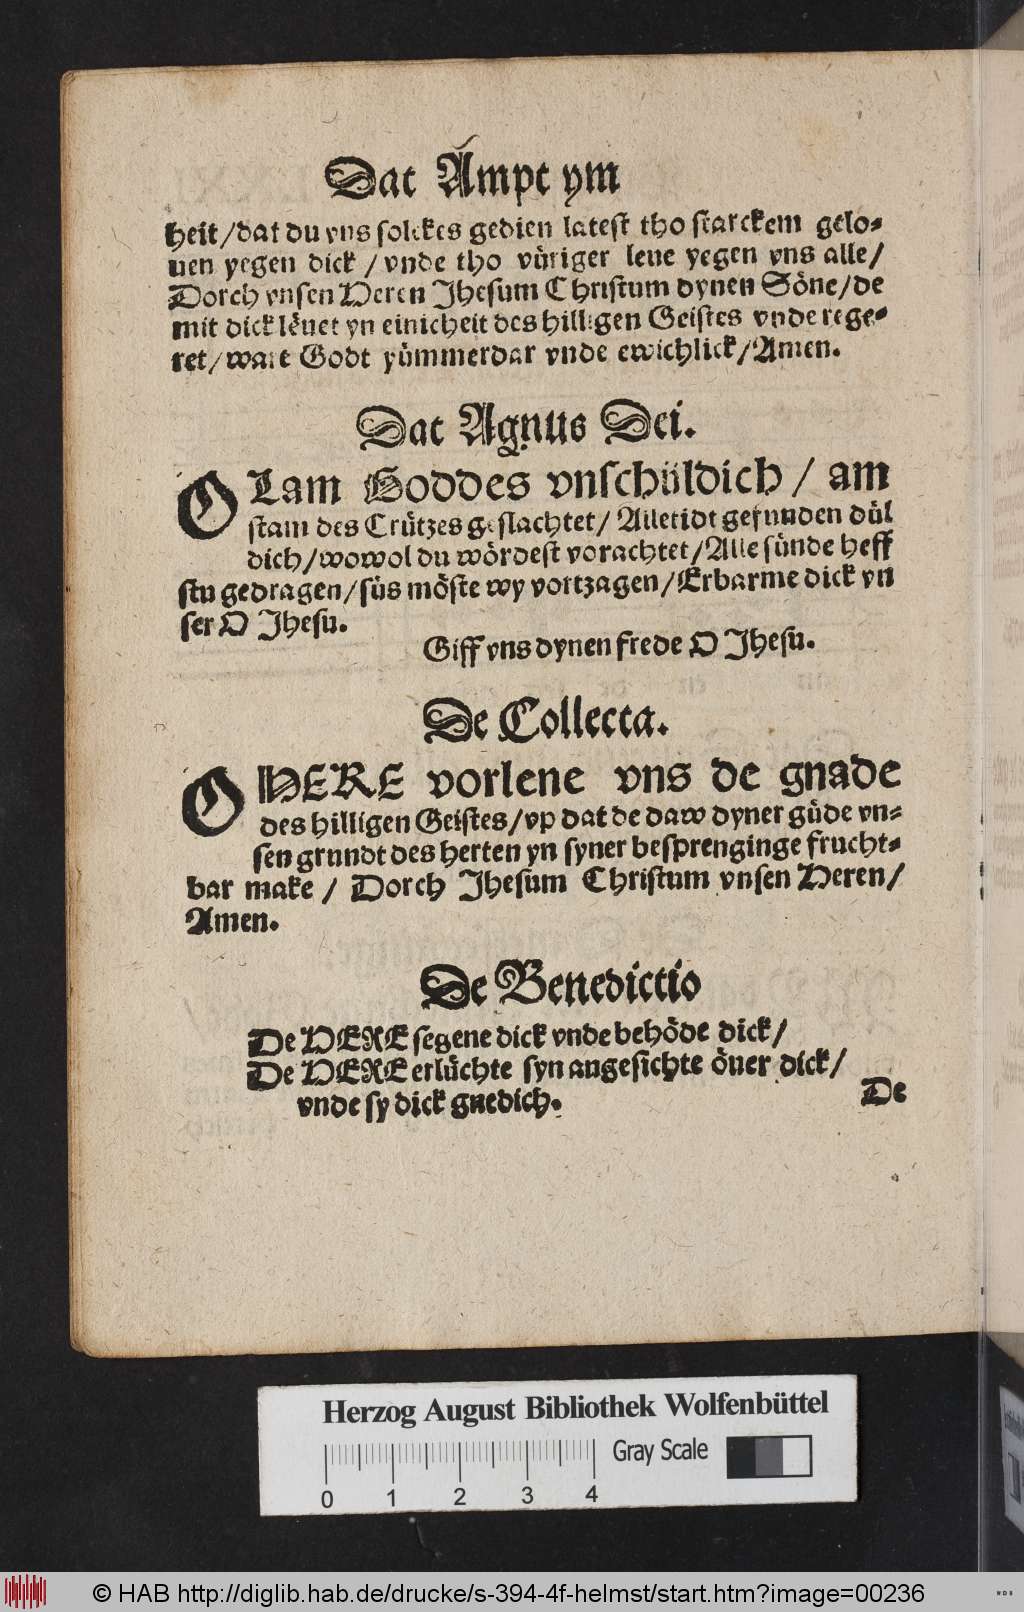 Dat Ampt ym
heit/dat du vns solckes gedien latest tho starckem gelo-
uen yegen dick/vnde tho vüriger leue yegen vns alle/
Dorch vnsen Heren Jhesum Christum dynen Söne/de
mit dick lëuet yn einicheit des hilligen Geistes vnde rege-
ret/wart Godt yümmerdar vnde ewichlick/Amen.
Dat Agnus Dei.
O Lam Goddes vnschüldich/am
stam des Crützes geslachtet/Alletidt gefunden dül
dich/wowol du wördest vorachtet/Alle sünde heff
stu gedragen/süs möste wy vortzagen/Erbarme dick vn
ser O Jhesu.
Giff vns dynen frede O Jhesu.
De Collecta.
O HERE vorlene vns de gnade
des hilligen Geistes/vp dat de daw dyner güde vn-
sen grundt des herten yn syner besprenginge frucht-
bar make/Dorch Jhesum Christum vnsen Heren/
Amen.
De Benedictio
De HERE segene dick vnde behöde dick/
De HERE erlüchte syn angesichte öuer dick/
vnde sy dick gnedich.
De
Herzog August Bibliothek Wolfenbüttel
Gray Scale
0 1 2 3 4
© HAB http://diglib.hab.de/drucke/s-394-4f-helmst/start.htm?image=00236